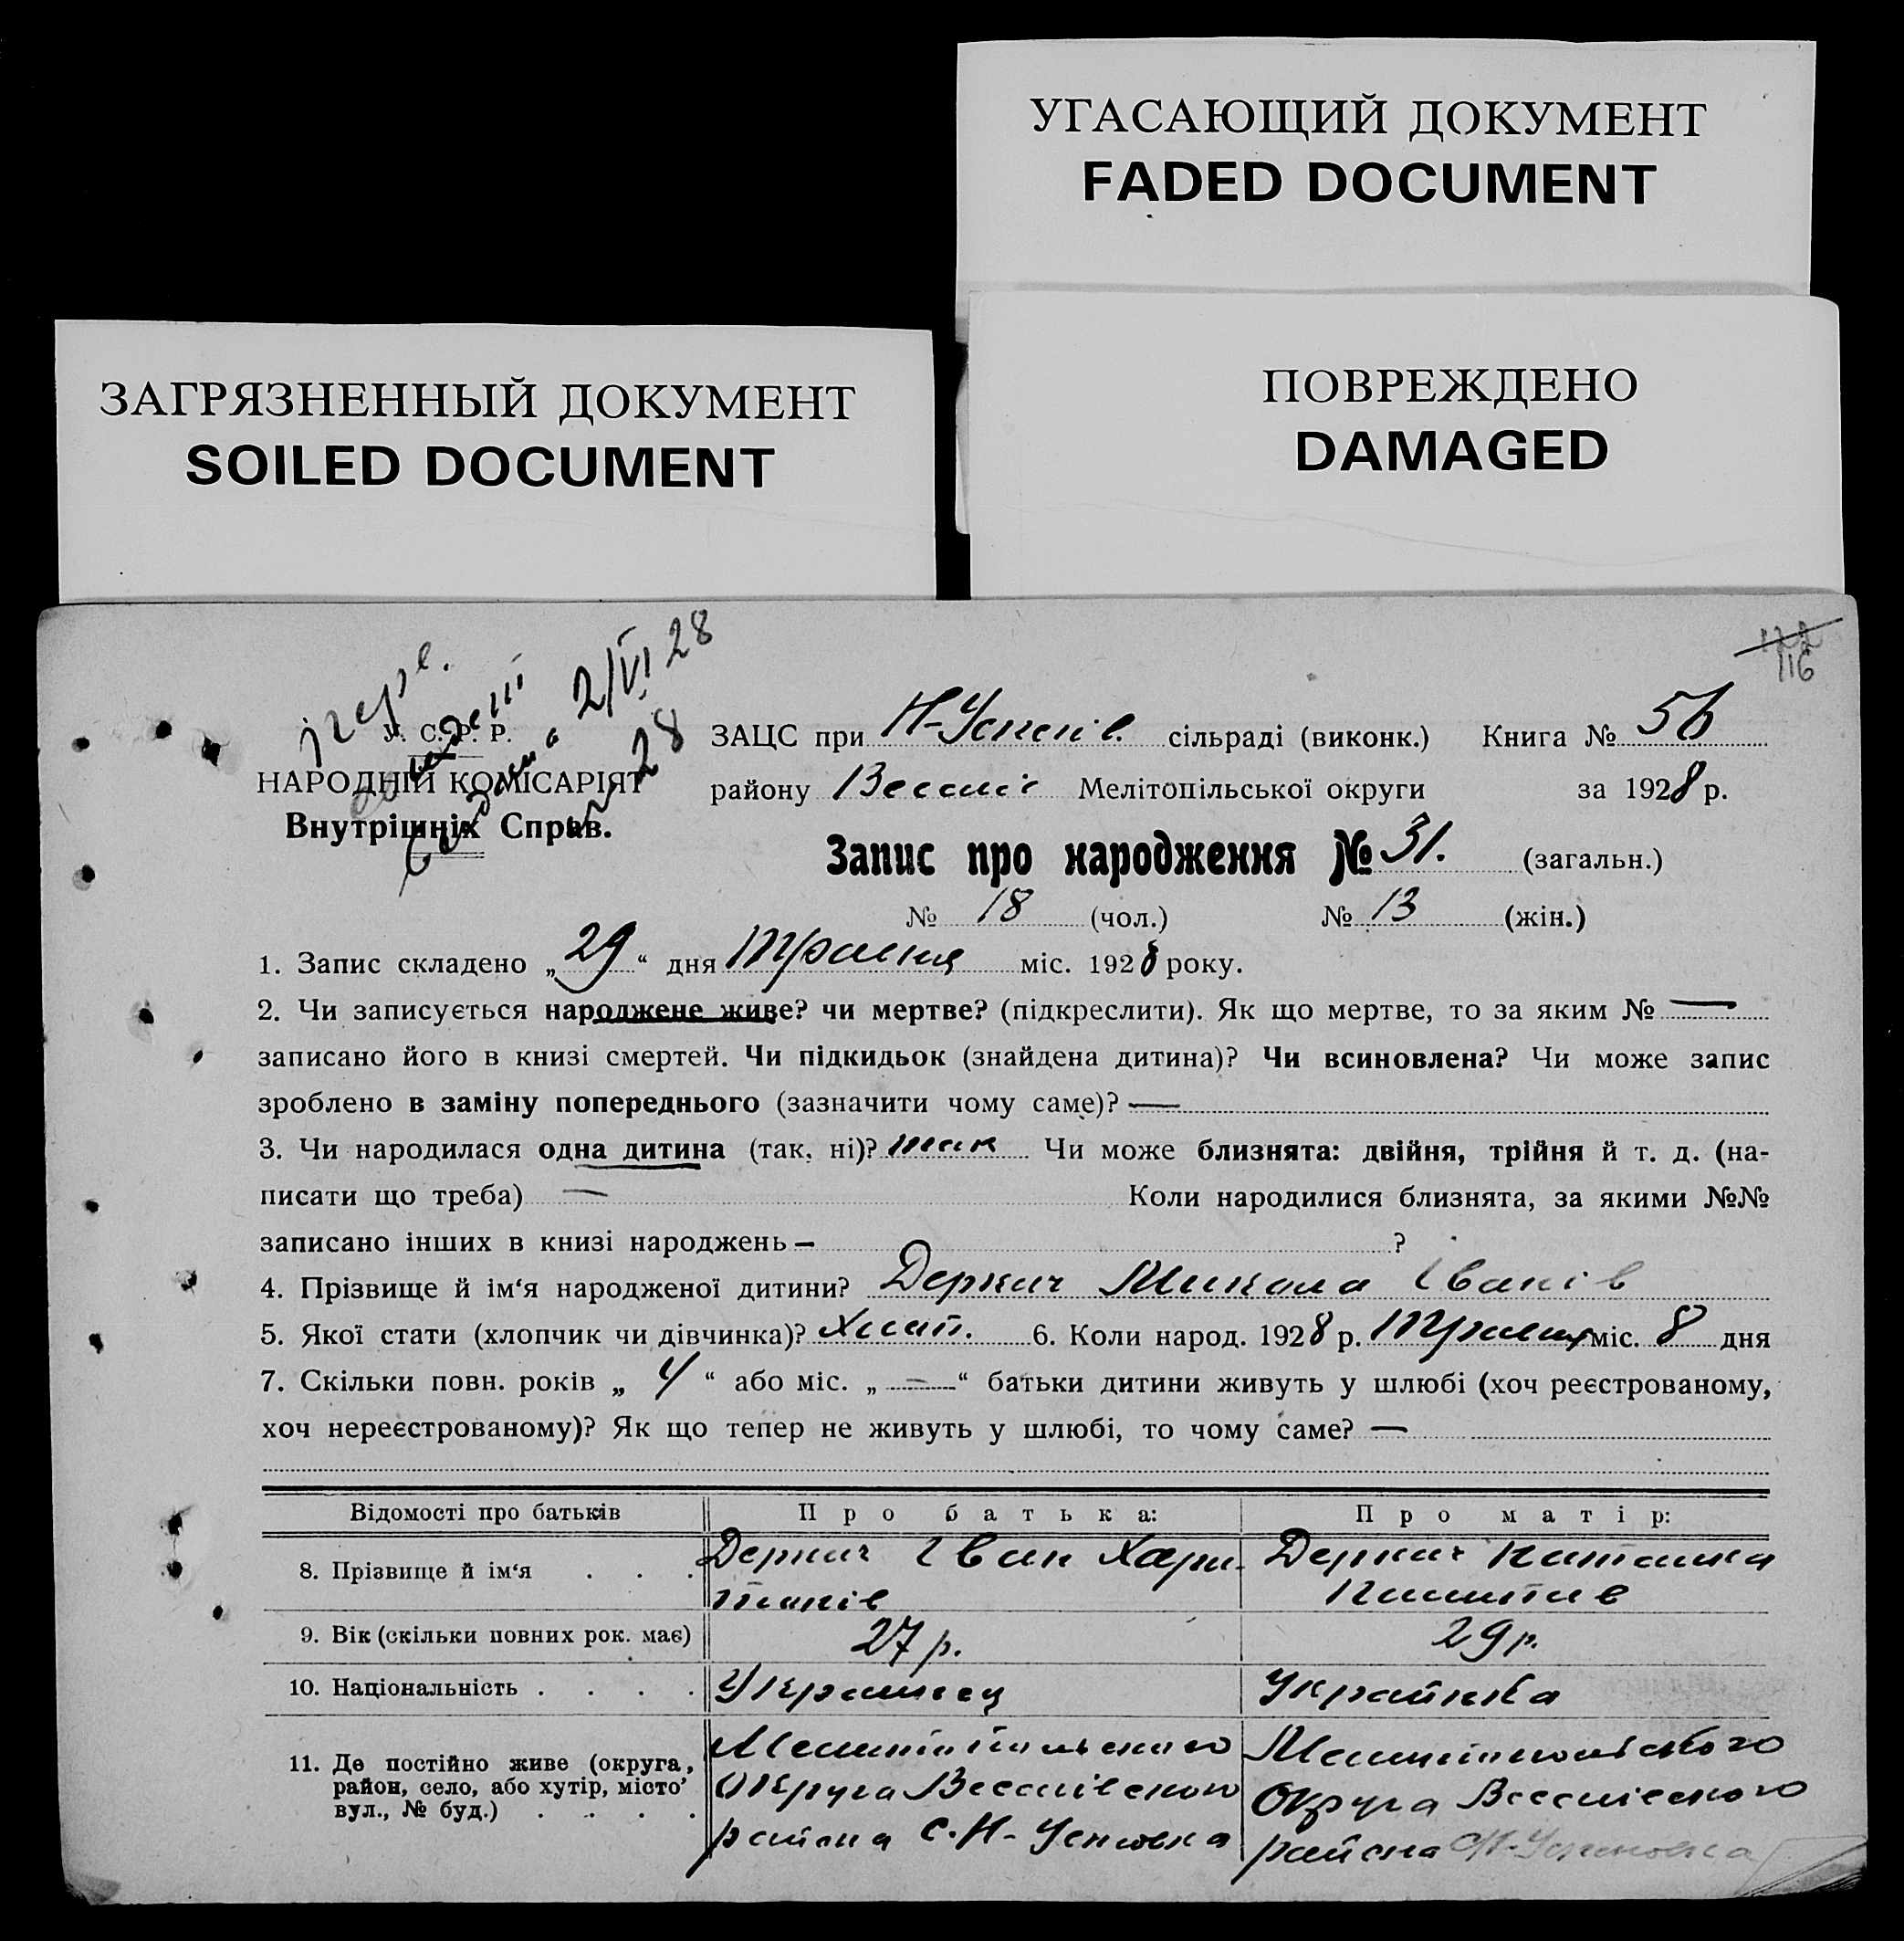 УГАСАЮЩИЙ ДОКУМЕНТ
FADED DOCUMENT
ЗАГРЯЗНЕННЫЙ ДОКУМЕНТ
SOILED DOCUMENT
ПОВРЕЖДЕНО
DAMAGED
116
2/VI 28
28
У. С. Р. Р.
НАРОДНІЙ КОМІСАРІЯТ
Внутрішніх Справ.
ЗАЦС при Н-Успенів. сільраді (виконк.) Книга № 5б
району Веселів Мелітопільської округи за 1928 р.
Запис про народження № 31. (загальн.)
№ 18 (чол.) № 13 (жін.)
1. Запис складено „29“ дня Травня міс. 1928 року.
2. Чи записується народжене живе? чи мертве? (підкреслити). Як що мертве, то за яким № —
записано його в книзі смертей. Чи підкидьок (знайдена дитина)? Чи всиновлена? Чи може запис
зроблено в заміну попереднього (зазначити чому саме)? —
3. Чи народилася одна дитина (так, ні)? так Чи може близнята: двійня, трійня й т. д. (на-
писати що треба) — Коли народилися близнята, за якими №№
записано інших в книзі народжень — ?
4. Прізвище й ім‘я народженої дитини? Деркач Микола Іванів
5. Якої стати (хлопчик чи дівчинка)? Хлоп. 6. Коли народ. 1928 р. Травня міс. 8 дня
7. Скільки повн. років „ 4 “ або міс. „ — “ батьки дитини живуть у шлюбі (хоч реєстрованому,
хоч нереєстрованому)? Як що тепер не живуть у шлюбі, то чому саме? —
Відомості про батьків Про батька: Про матір:
8. Прізвище й ім‘я . . . Деркач Іван Хари- Деркач Наталка
тонів
9. Вік (скільки повних рок. має) 27 р. 29 р.
10. Національність . . . . Украинец Украінка
11. Де постійно живе (округа, Мелитопольского Мелитопольского
район, село, або хутір, місто’ Округа Веселівского Округа Веселівского
вул., № буд.) . . . . района С. Н-Успновка района Н-Успеновка